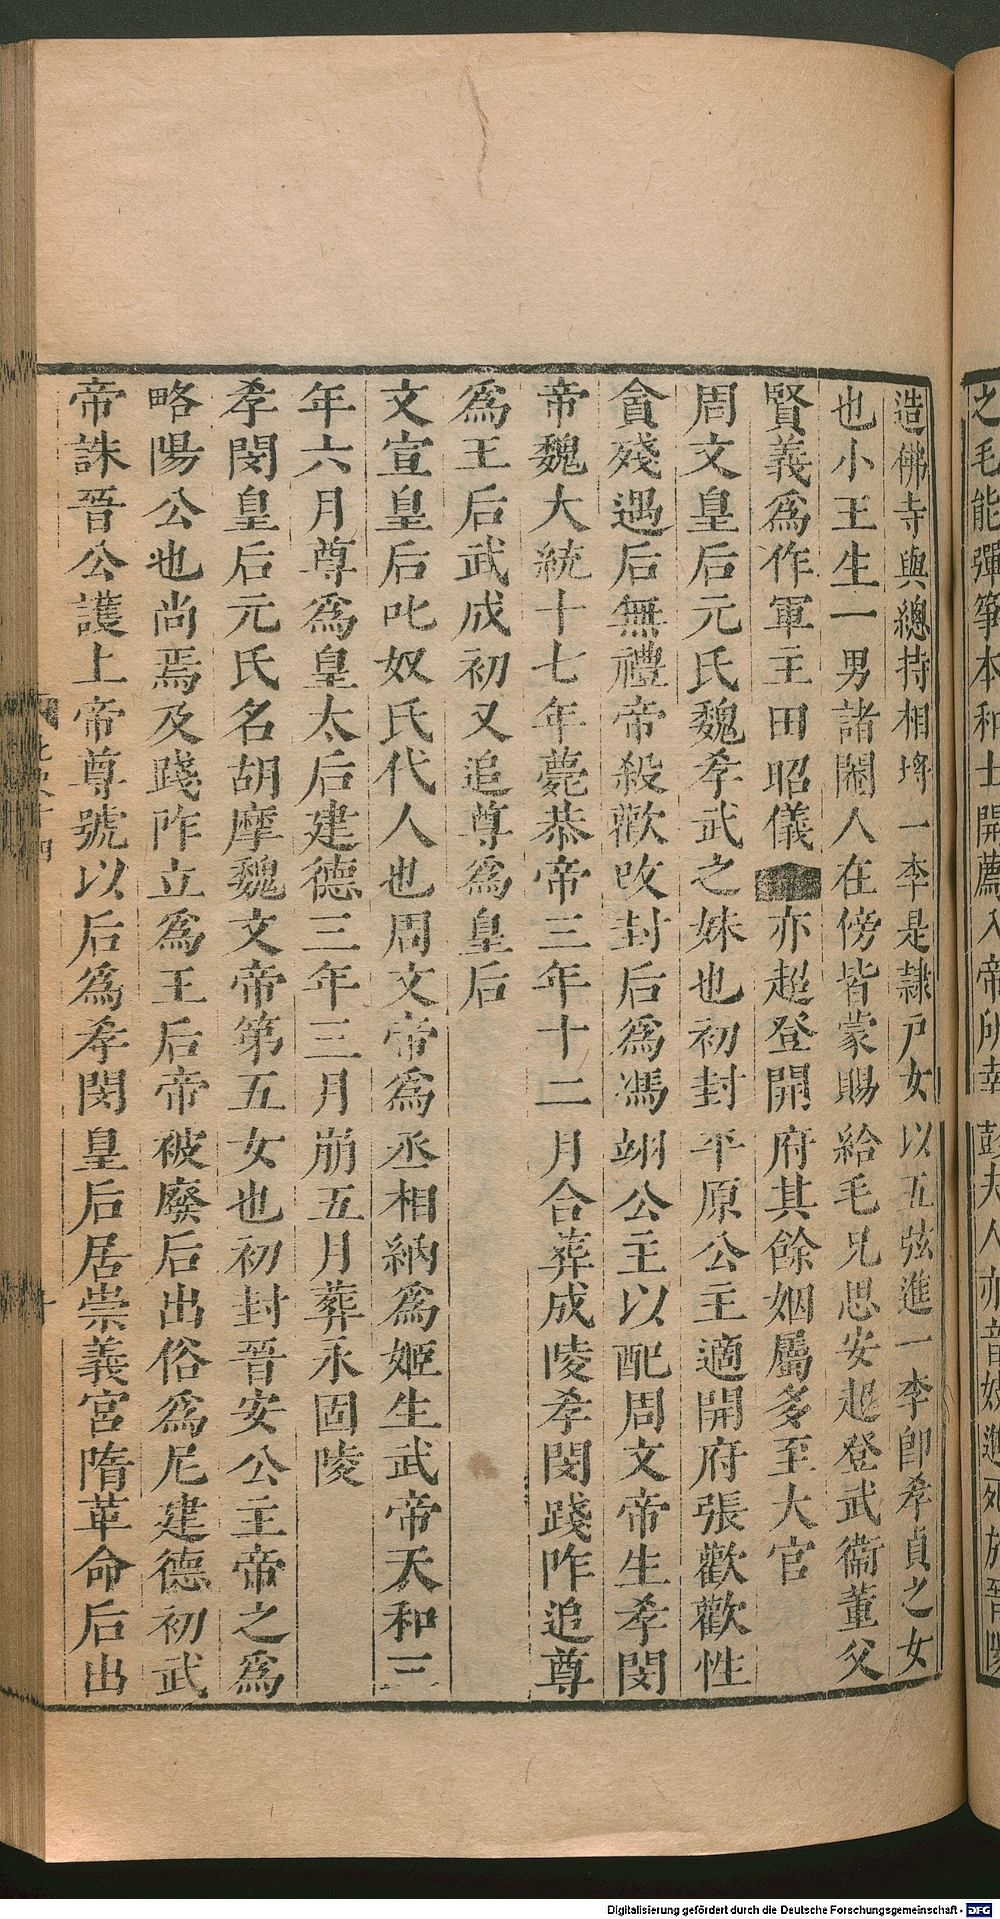 之毛能彈箏本和士開薦入帝所幸彭夫人亦音妓進死於晉陽
造佛寺與總持相埒一李是隸戶女以五弦進一李卽孝貞之女
也小王生一男諸閹人在傍皆蒙賜給毛兄思安超登武衞董父
賢義爲作軍主田昭儀亦超登開府其餘姻屬多至大官
周文皇后元氏魏孝武之妹也初封平原公主適開府張歡歡性
貪殘遇后無禮帝殺歡改封后爲馮翊公主以配周文帝生孝閔
帝魏大統十七年薨恭帝三年十二月合葬成陵孝閔踐咋追尊
爲王后武成初又追尊爲皇后
文宣皇后叱奴氏代人也周文帝爲丞相納爲姬生武帝天和三
年六月尊爲皇太后建德三年三月崩五月葬永固陵
孝閔皇后元氏名胡摩魏文帝第五女也初封晉安公主帝之爲
略陽公也尚焉及踐阼立爲王后帝被廢后出俗爲尼建德初武
帝誅晉公護上帝尊號以后爲孝閔皇后居崇義宮隋革命后出
Digitalisierung gefördert durch die Deutsche Forschungsgemeinschaft - DFG